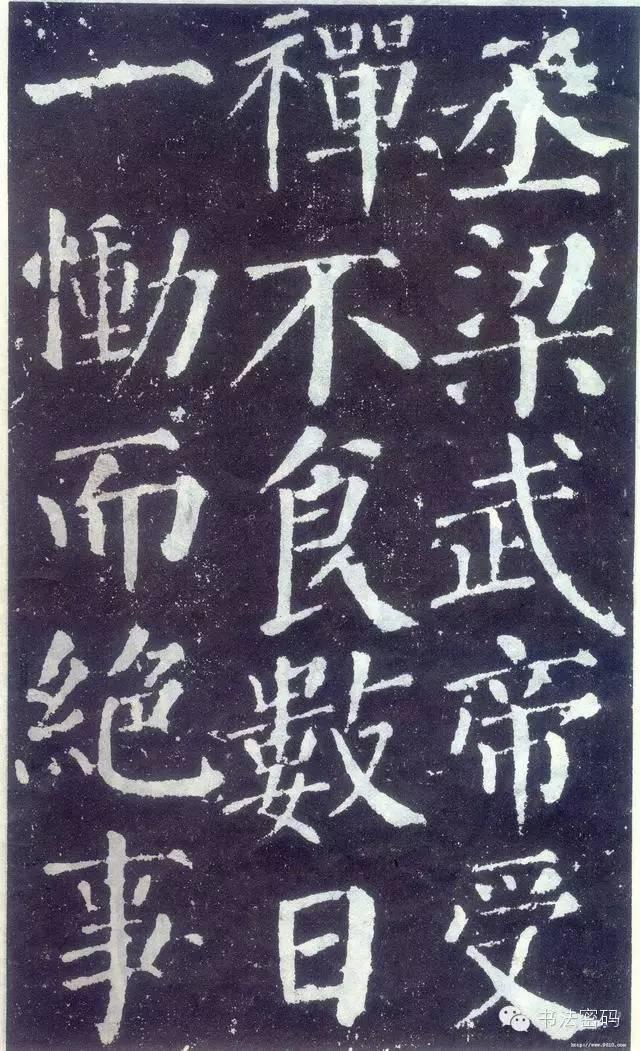 丞梁武帝受
禪不食數日
一慟而絕事
书法密码
http://www.9610.com